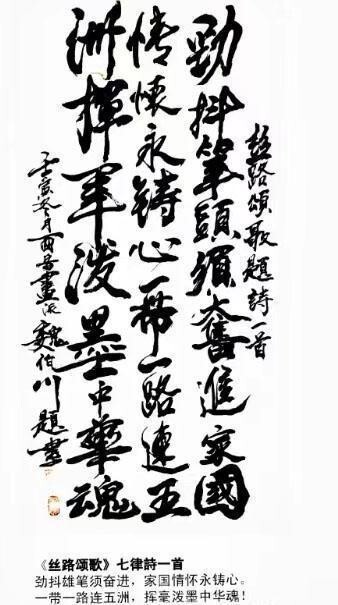 丝路頌歌題詩一首
勁抖筆頭須奮進家國
情懷永鑄心一帶一路連五
洲揮毫潑墨中華魂
壬寅冬月西蜀畫派魏伯川題書
《丝路颂歌》七律詩一首
劲抖雄笔须奋进，家国情怀永铸心。
一带一路连五洲，挥毫泼墨中华魂！